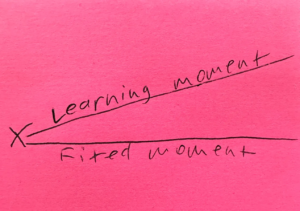 Learning moment
X
Fixed moment